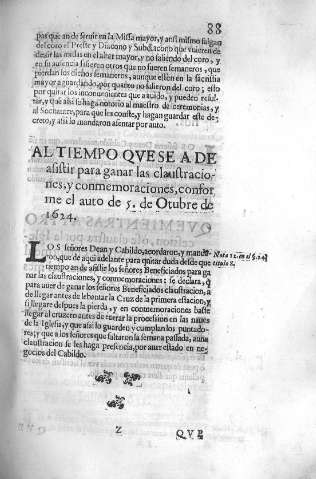 88
pas que an de seruir en la Missa mayor, y assi mismo salgan
del coro el Preste y Diacono y Subdiacono que vuieren de
dezir las missas en el altar mayor, y no saliendo del coro, y
en su ausencia siruen otros que no fueren semaneros, que
pierdan los dichos semaneros, aunque estèn en la sacristia
mayor aguardando, por quanto no salieron del coro; esto
por quitar los inconuenientes que a auido, y pueden resul-
tar, y que assi se haga notorio al maestro de ceremonias, y
al Sochantre, para que les conste, y hagan guardar este de-
creto, y assi lo mandaron asentar por auto.
AL TIEMPO QVE SE A DE
asistir para ganar las claustracio-
nes, y conmemoraciones, confor
me el auto de 5. de Otubre de
1624.
LOS señores Dean y Cabildo, acordaron, y manda-
ron, que de aqui adelante para quitar duda desde que
tiempo an de asistir los señores Beneficiados para ga
nar las claustraciones, y conmemoraciones: se declara, q
para auer de ganar los señores Beneficiados claustracion, a
de llegar antes de lebantar la Cruz de la primera estacion, y
si se fuere despues la pierda, y en conmemoraciones baste
llegar al cruzero antes de entrar la procession en las naues
de la Iglesia, y que assi lo guarden y cumplan los puntado-
res; y que a los señores que faltaron la semana passada, a una
claustracion se les haga presencia, por auer estado en ne-
gocios del Cabildo.
Z
QVE